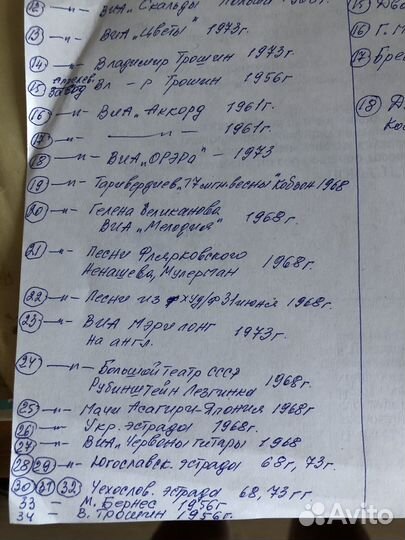 12 —"— ВИА "Скальды
13 —"— ВИА "Цветы" 1973г.
14 —"— Владимир Трошин 1973г
15 завод Вл — р Трошин 1956г
16 —"— ВИА "Аккорд 1961г.
17 —"— —"— 1961г.
18 —"— ВИА "ОРЭРа" — 1973
19 —"— Таривердиев, "17 мгн. весны" Кобзон 1968
20 —"— Гелена Великанова
ВИА "Мелодия" 1968г.
21 —"— Песни Флярковского
Ненашева, Мулерман 1968г.
22 —"— Песни из худ/ф 31 июня 1968г.
23 —"— ВИА Мэри лонг
на англ. 1973г.
24 —"— Большой театр СССР
Рубинштейн Лезгинка 1968г.
25 —"— Мачи Асагири-Япония 1968г
26 —"— Укр. эстрада 1968г.
27 —"— ВИА "Червоны гитары 1968
28 29 —"— Югославск. эстрада 68г, 73г.
30 31 32 Чехослов. эстрада 68, 73гг
33 — М. Бернес 1956г
34 — В. Трошин 1956г.
15
16 Г. М
17 Бре
18
Ко
Avito